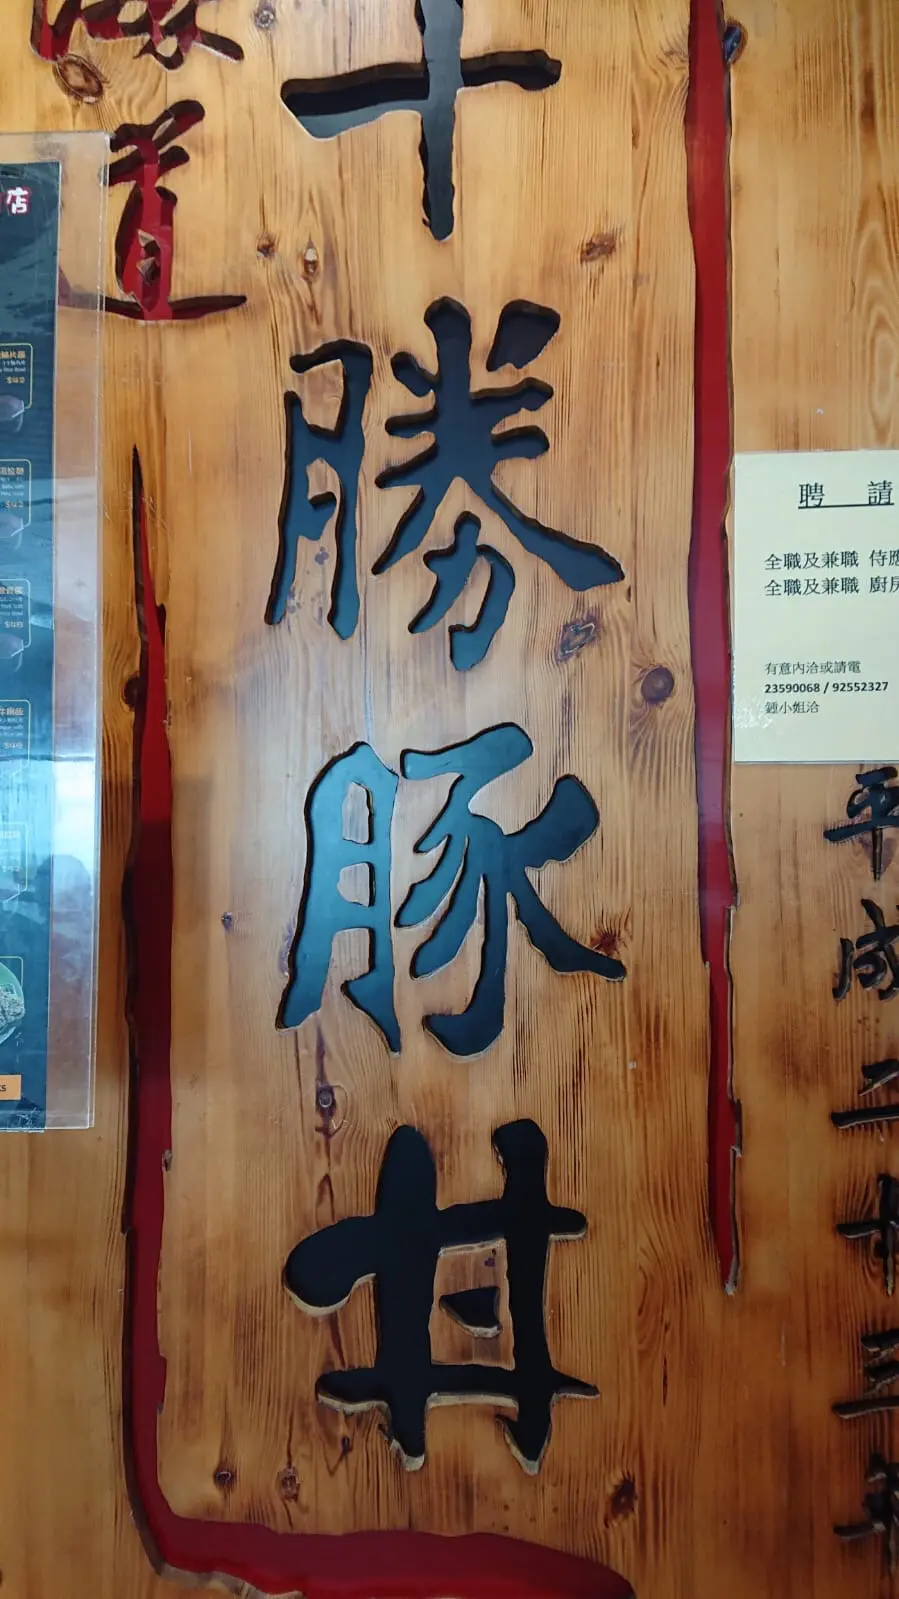 道
十勝豚丼
店
聘 請
全職及兼職 侍應
全職及兼職 廚房
有意內洽或請電
23590068 / 92552327
鍾小姐洽
平成二十三年